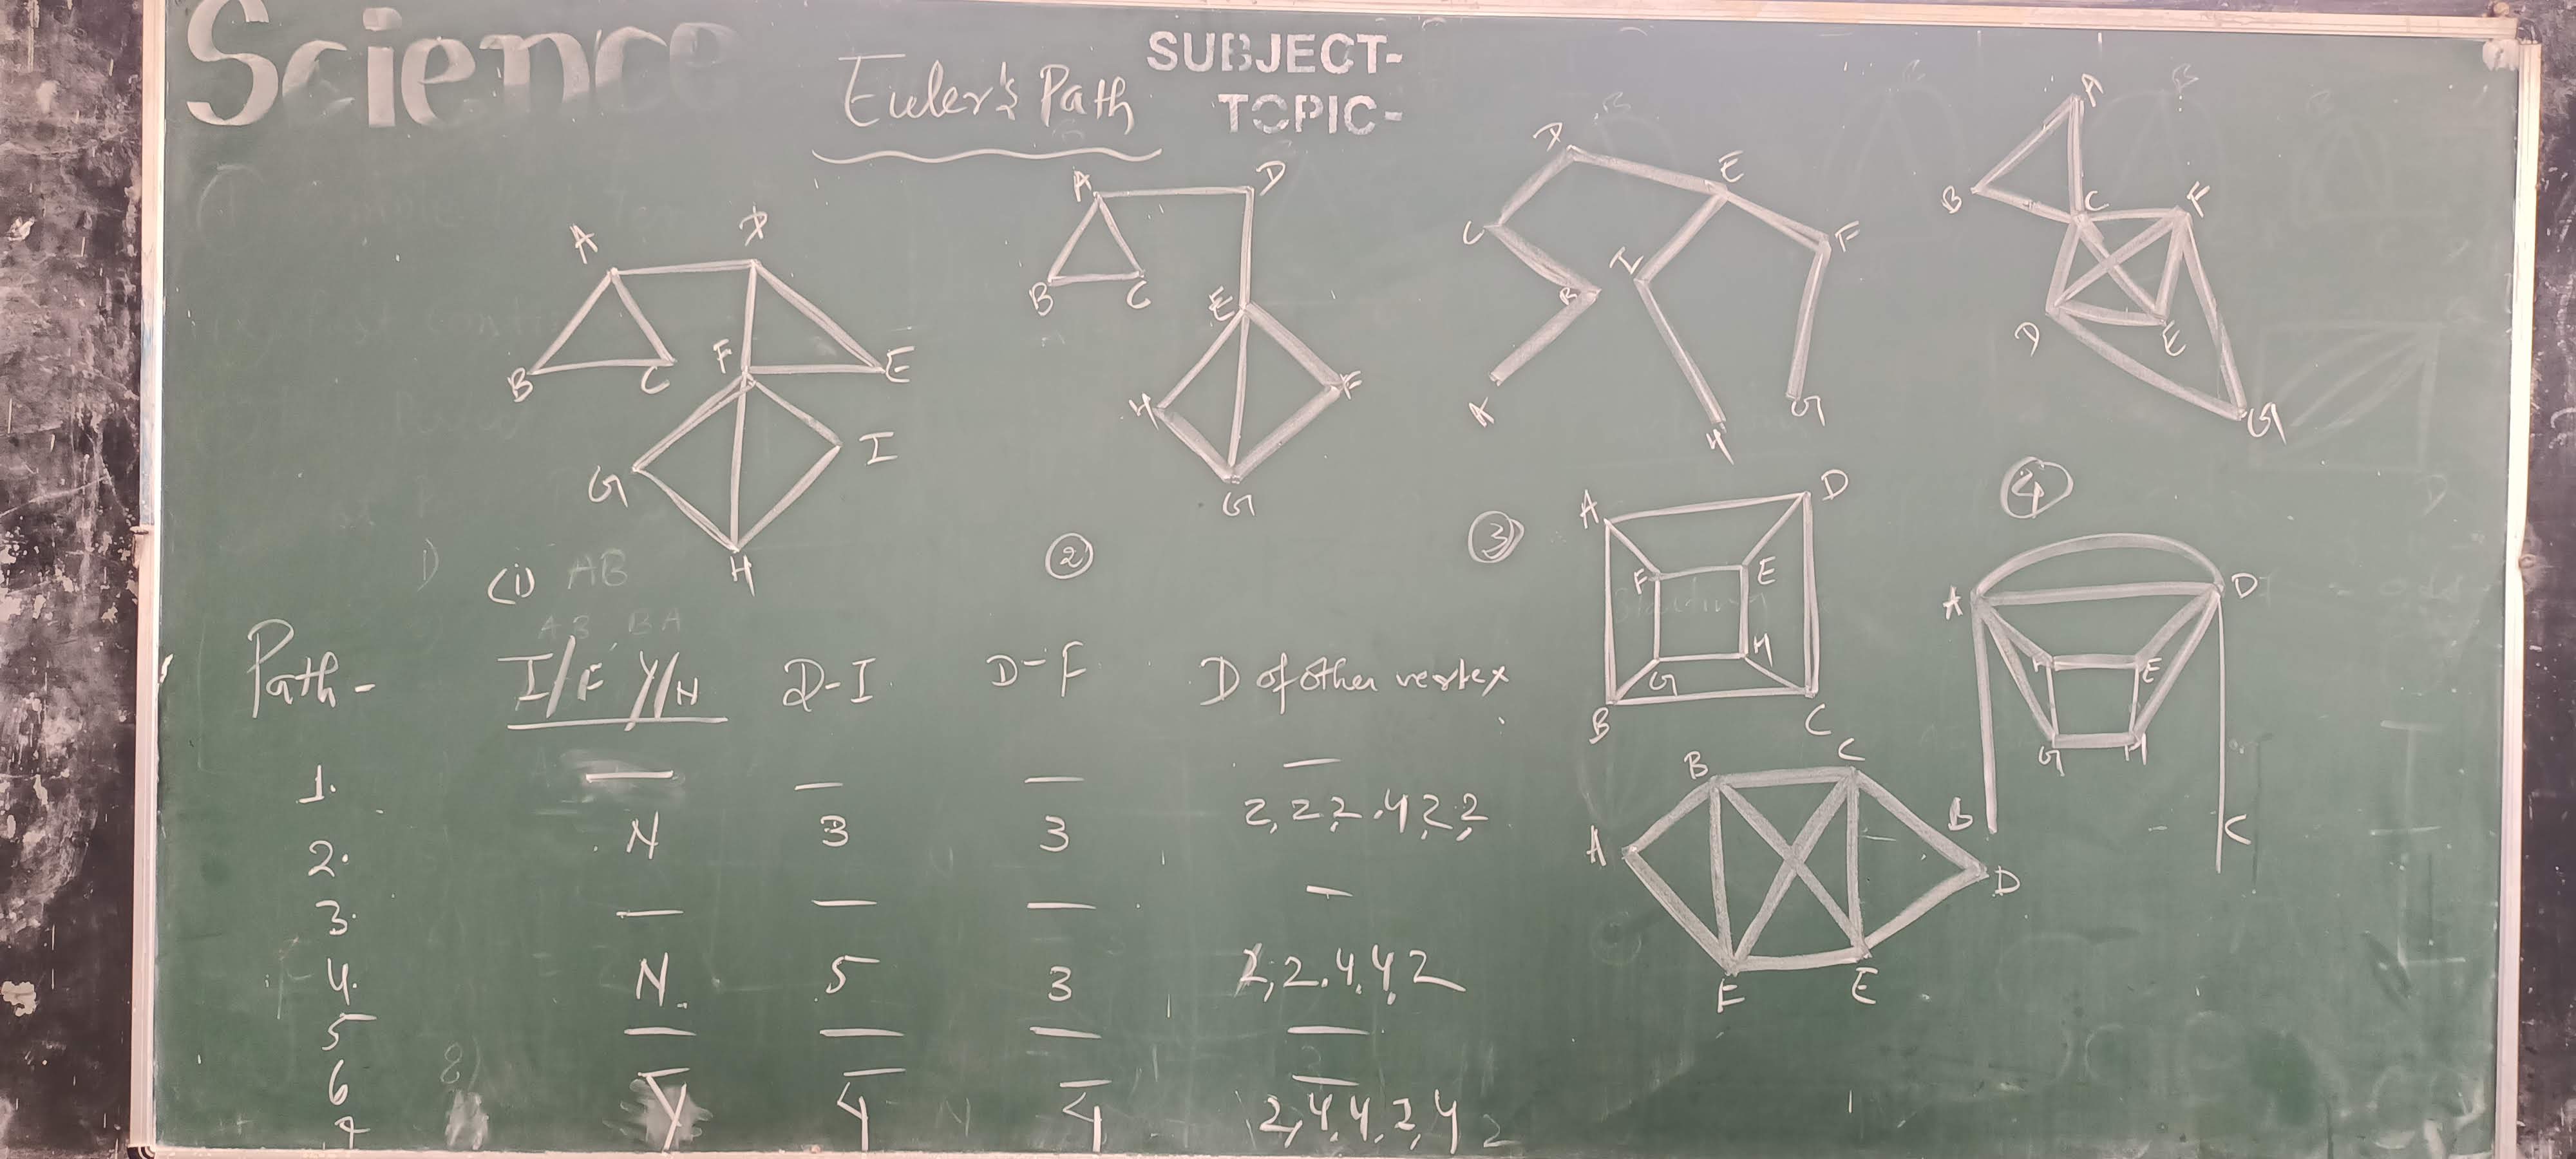 Science
SUBJECT-
Euler's Path
TOPIC-
A D
B C F E
G I
H
A D
B C E
H F
G
D E
C I F
B
A H G
A
B C F
D E
G
(i) AB
AB BA
②
③
④
A D
F E
G H
B C
A D
E
G H
B C
B C
A D
F E
Path- I/F Y/N D-I D-F D of other vertex
1. — — — —
2. N 3 3 2,2,2,4,2,2
3. — — — —
4. N 5 3 2,2,4,4,2
5 — — — —
6 — — — —
7 Y 4 4 2,4,4,2,4